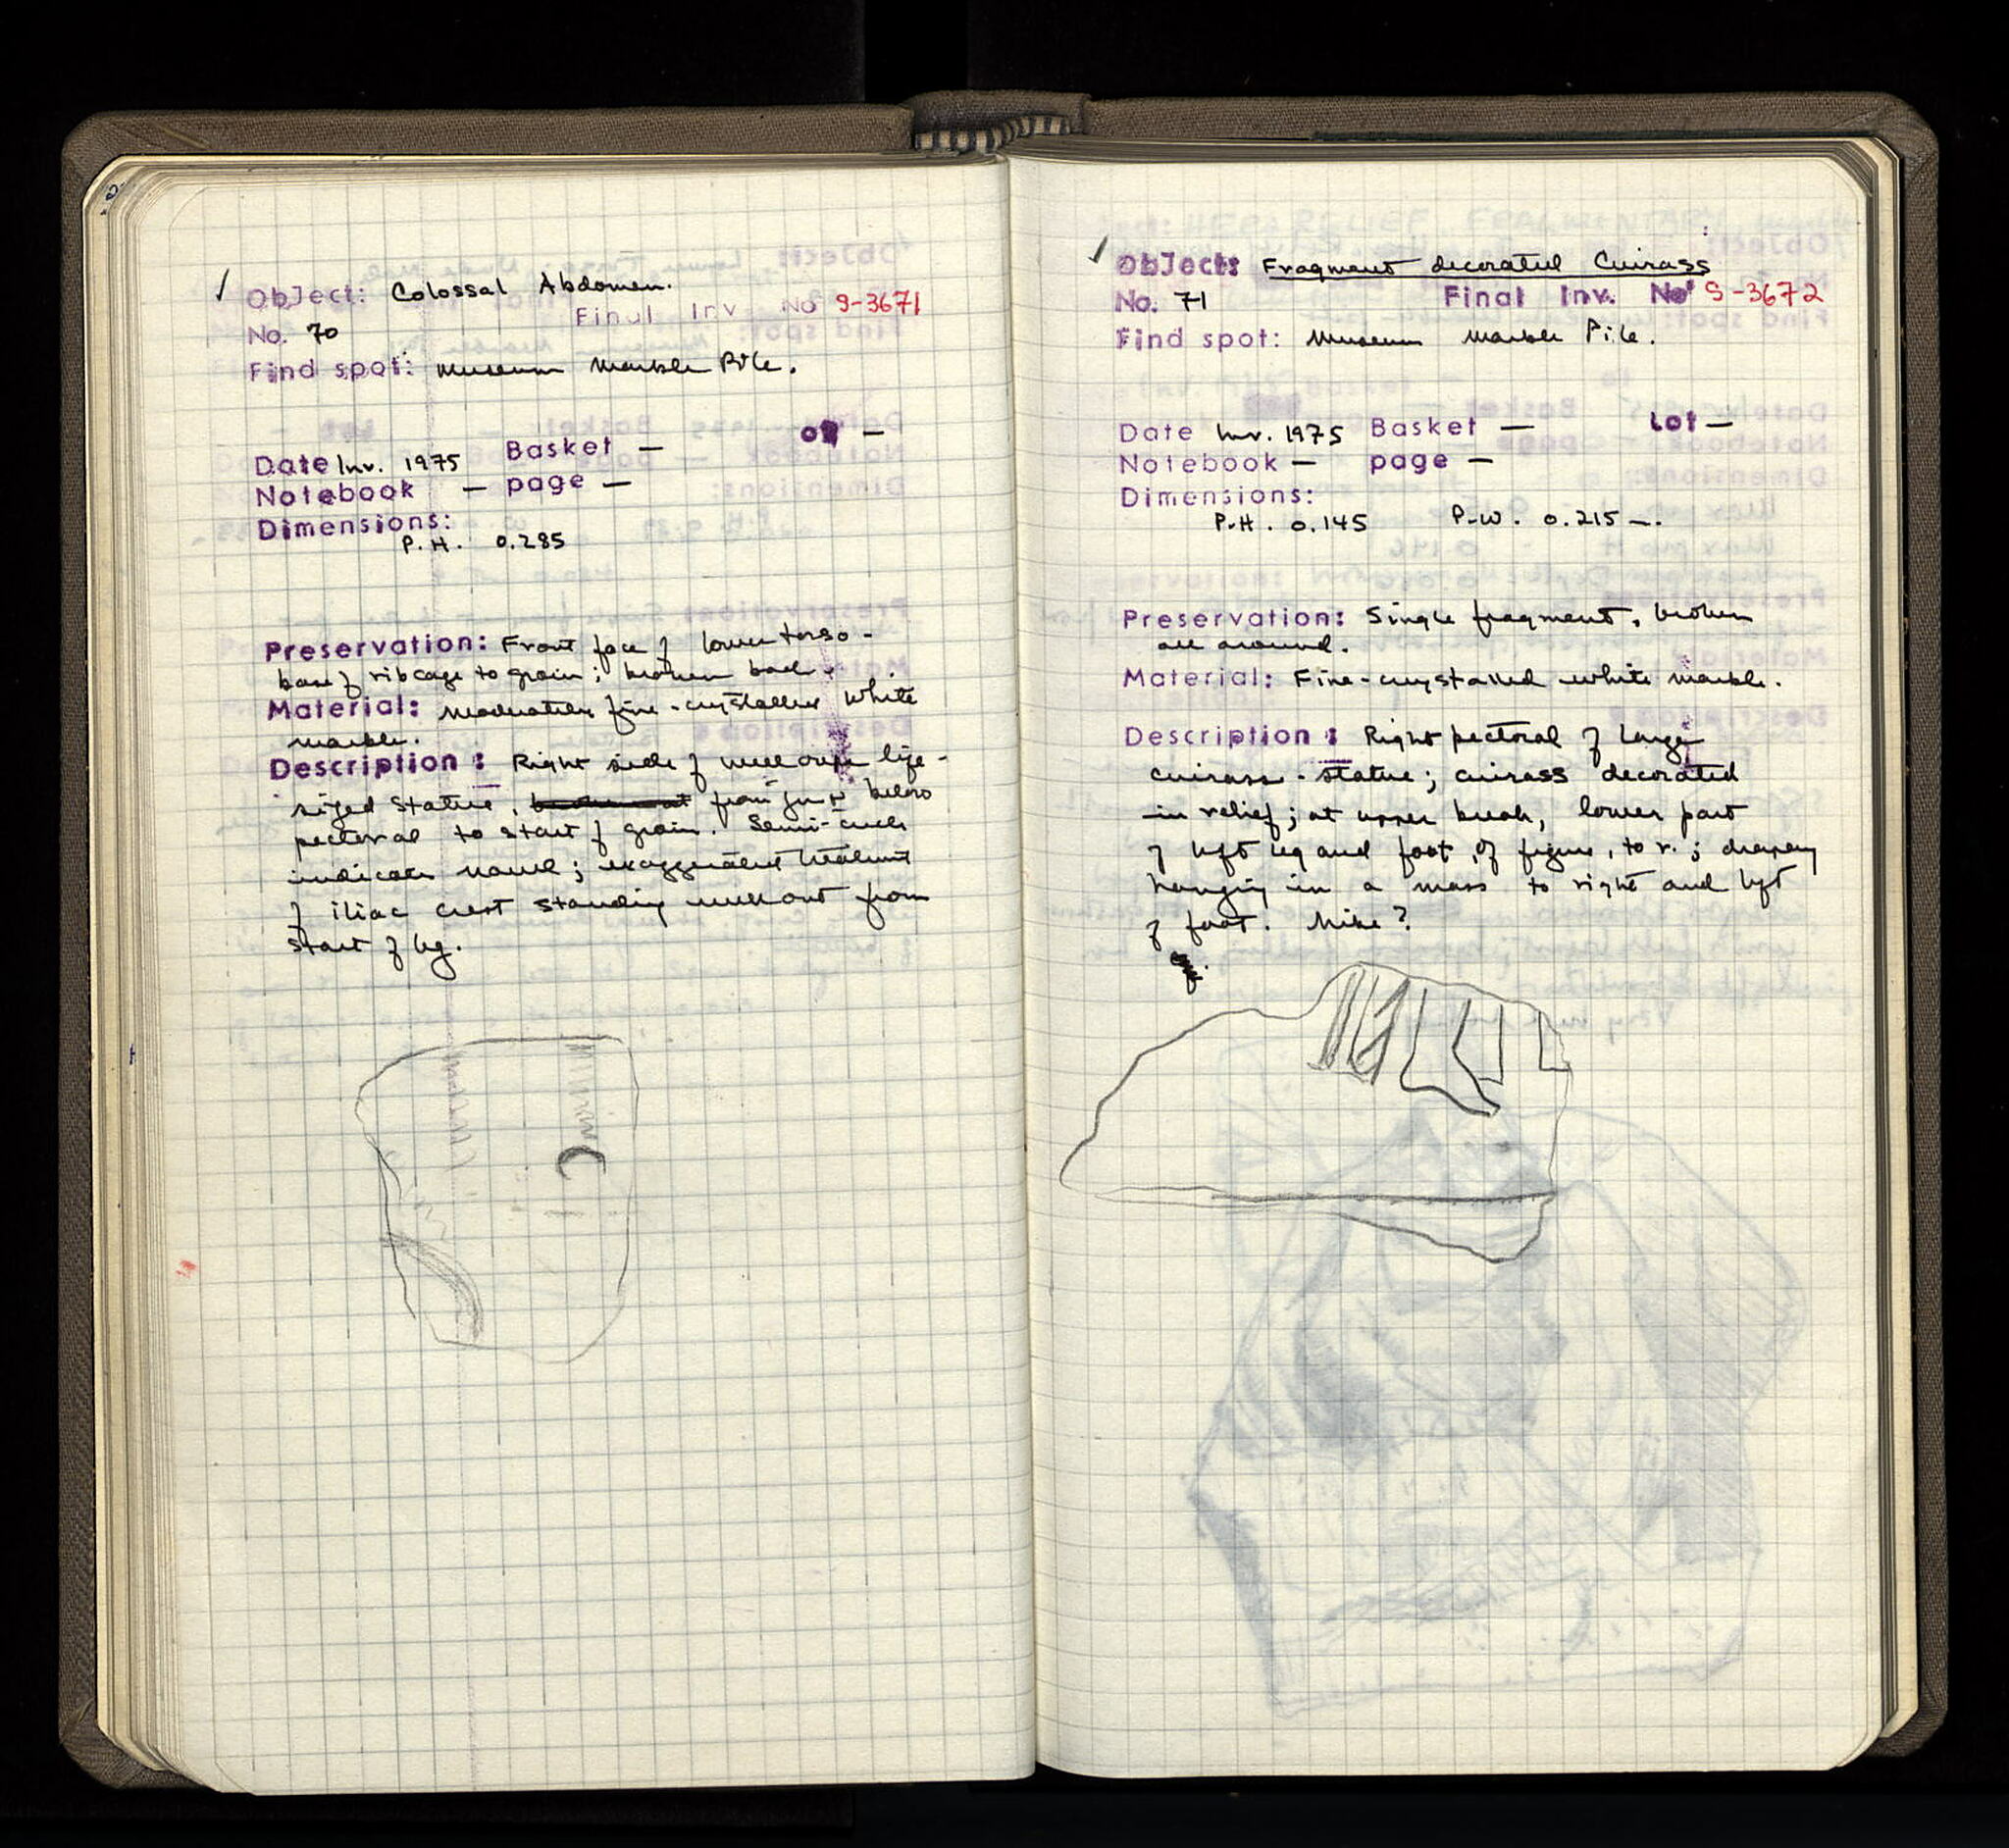 ✓ Object: Colossal Abdomen.
Final Inv No S-3671
No. 70
Find spot: Museum Marble Pile.
Date Inv. 1975 Basket — Lot —
Notebook — page —
Dimensions:
P.H. 0.285
Preservation: Front face of lower torso -
base of ribcage to groin; broken back.
Material: Moderately fine-crystalled white
marble.
Description: Right side of well over life-
sized statue, from just below
pectoral to start of groin. Semi-circle
indicates navel; exaggerated treatment
of iliac crest standing well out from
start of leg.
✓ Object: Fragment decorated Cuirass
No. 71 Final Inv. No S-3672
Find spot: Museum Marble Pile.
Date Inv. 1975 Basket — Lot —
Notebook — page —
Dimensions:
P.H. 0.145 P.W. 0.215 —.
Preservation: Single fragment, broken
all around.
Material: Fine-crystalled white marble.
Description: Right pectoral of large
cuirass-statue; cuirass decorated
in relief; at upper break, lower part
of left leg and foot, of figure, to r.; drapery
hanging in a mass to right and left
of foot. Nike?